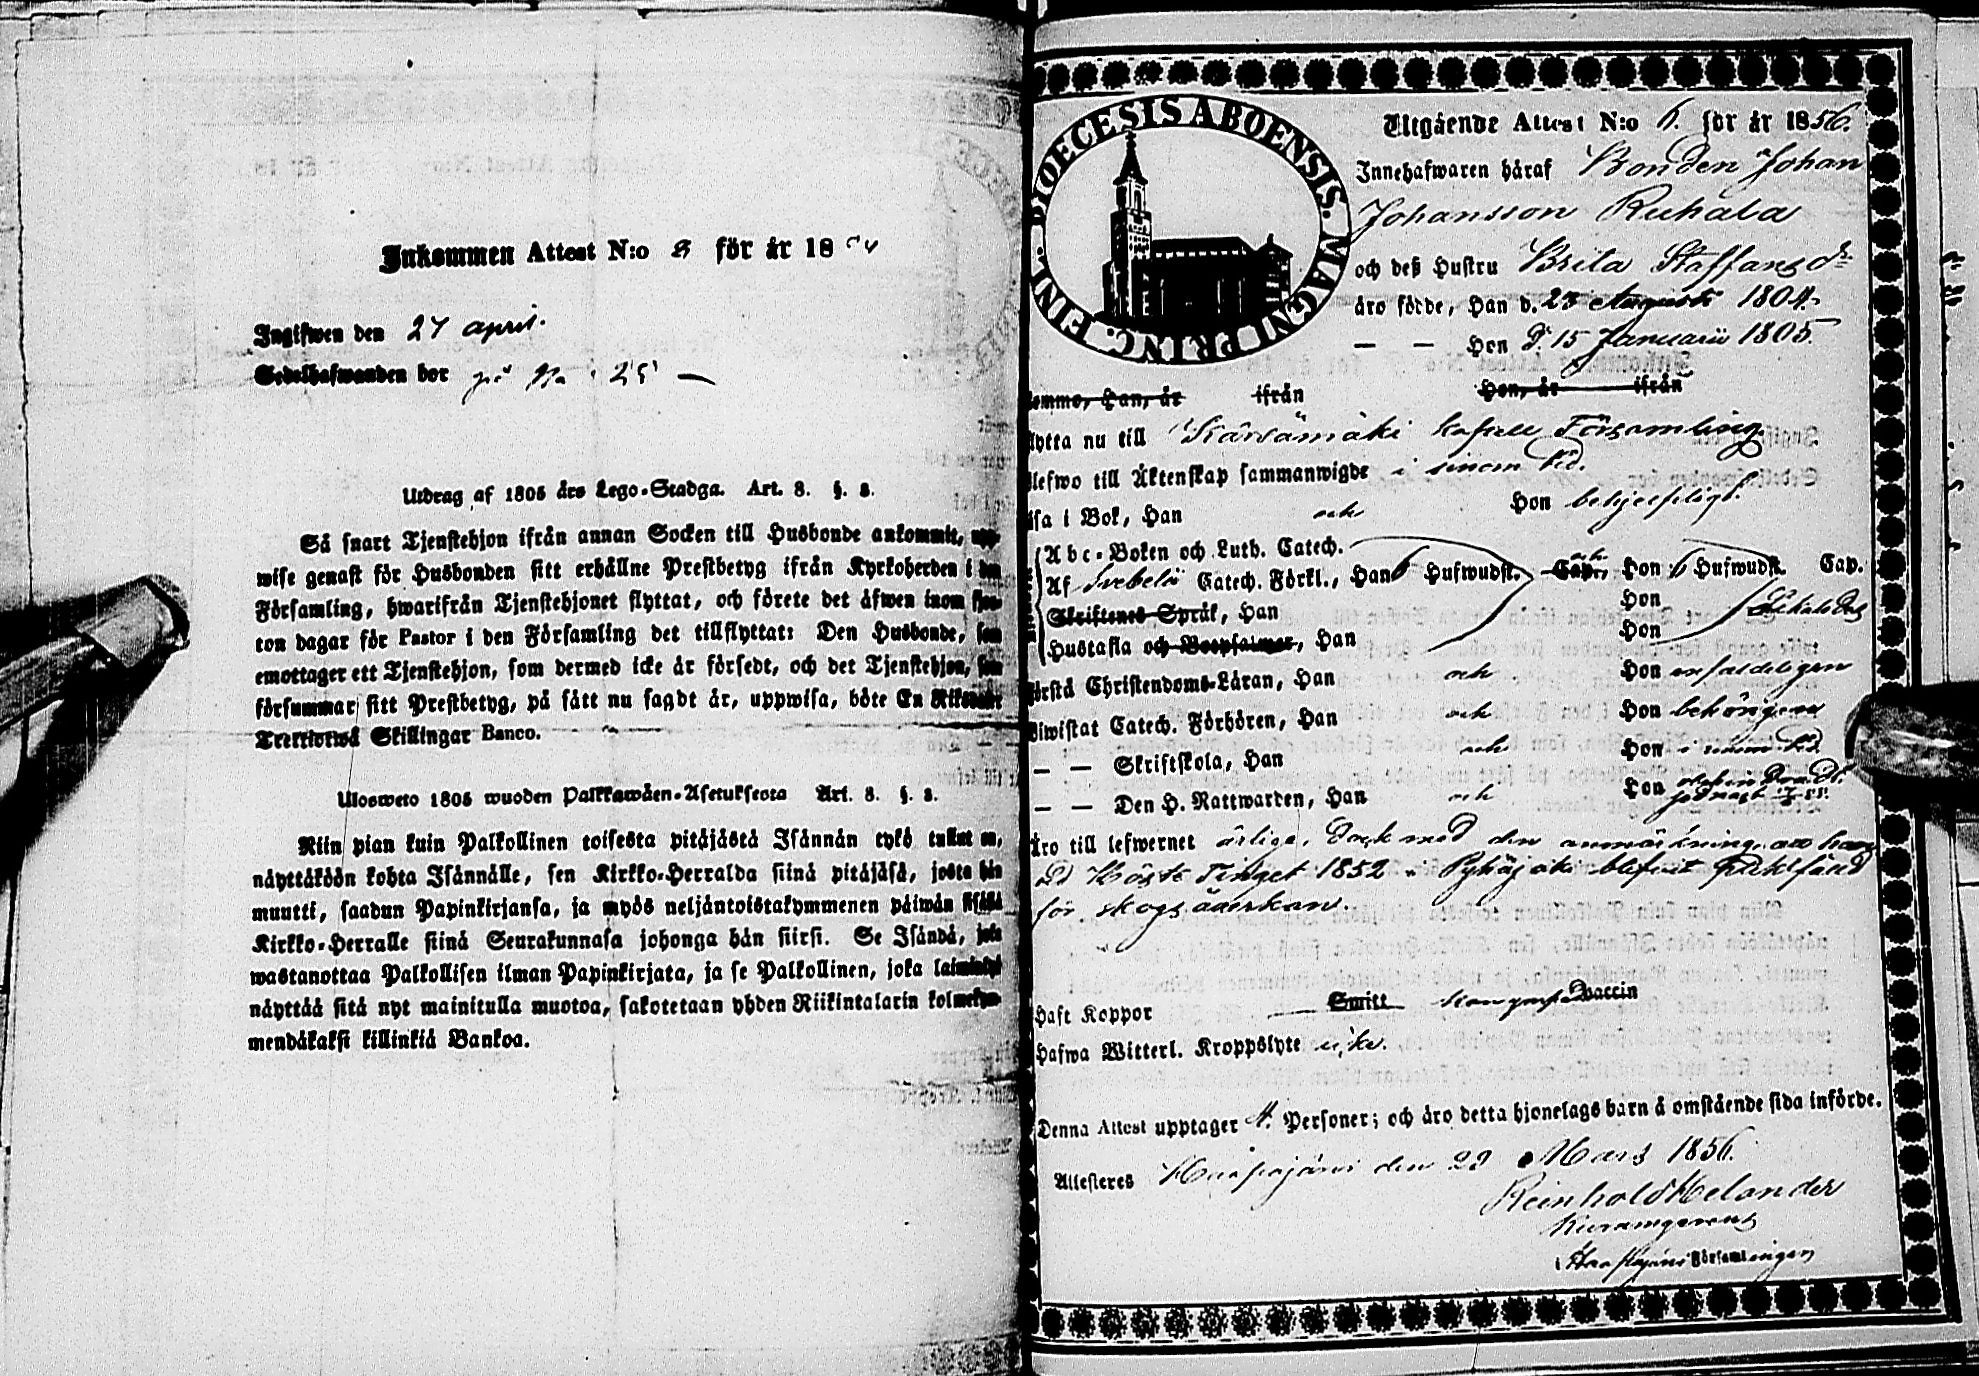 Inkommen Attest N:o 8 för år 18
Ingifwen den 27 april.
Sedelhafwanden bor på No 25
Utdrag af 1805 års Lego-Stadga. Art. 8. §. 8.
Så snart Tjenstehjon ifrån annan Socken till Husbonde ankommit, upp-
wise genast för Husbonden sitt erhållne Prestbetyg ifrån Kyrkoherden i den
Församling, hwarifrån Tjenstehjonet flyttat, och förete det äfwen inom fjor-
ton dagar för Pastor i den Församling det tillflyttat: Den Husbonde, som
emottager ett Tjenstehjon, som dermed icke är försedt, och det Tjenstehjon, som
försummar sitt Prestbetyg, på sätt nu sagdt är, uppwisa, böte En Riksdaler
Trettiotwå Skillingar Banco.
Ulosweto 1805 wuoden Palkkawäen-Asetuksesta Art. 8. §. 8.
Niin pian kuin Palkollinen toisesta pitäjästä Isännän tykö tullut on,
näyttäköön kohta Isännälle, sen Kirkko-Herralda siinä pitäjäsä, josta hän
muutti, saadun Papinkirjansa, ja myös neljäntoistakymmenen päiwän sisällä
Kirkko-Herralle siinä Seurakunnasa johonga hän siirsi. Se Isändä, joka
wastanottaa Palkollisen ilman Papinkirjata, ja se Palkollinen, joka laiminlyö
näyttää sitä nyt mainitulla muotoa, sakotetaan yhden Riikintalarin kolmekym-
mendäkaksi killinkiä Bankoa.
DIOECESIS ABOENSIS. MAGNI PRINC. FINL.
Utgående Attest N:o 6. för år 1856.
Innehafwaren häraf Bonden Johan
Johansson Ruhala
och deß Hustru Brita Staffansdr
äro födde, Han d. 23 Augusti 1804.
— — Hon d. 15 Januarii 1805.
komme, Han, år ifrån Hon, år ifrån
flytta nu till Kärsämäki kapell Församling.
Blefwo till Äktenskap sammanwigde i sinom tid.
läsa i Bok, Han och Hon behjelpligt.
Abc-Boken och Luth. Catech.
Af Svebelii Catech. Förkl., Han 6 Hufwudst. Cap., Hon 6 Hufwudst. Cap.
Skriftenes Språk, Han Hon
Hustafla och Botpsalmer, Han Hon
förstå Christendoms-Läran, Han och Hon enfaldeligen
Biwistat Catech. Förhören, Han och Hon behörigen
— — Skriftskola, Han och Hon i sinom tid
— — Den H. Nattwarden, Han och Hon
Äro till lefwernet ärlige, dock med den anmärkning, att han
wid Höste Tinget 1852 i Pyhäjoki blefwit sakfäld
för skogsåwerkan.
Haft Koppor Smitt Vaccin
Hafwa Witterl. Kroppslyte icke.
Denna Attest upptager 4. Personer; och äro detta hjonelags barn å omstående sida införde.
Attesteres Haapajärvi den 29 Mars 1856.
Reinhold Helander
i Haapajärvi Församlingen